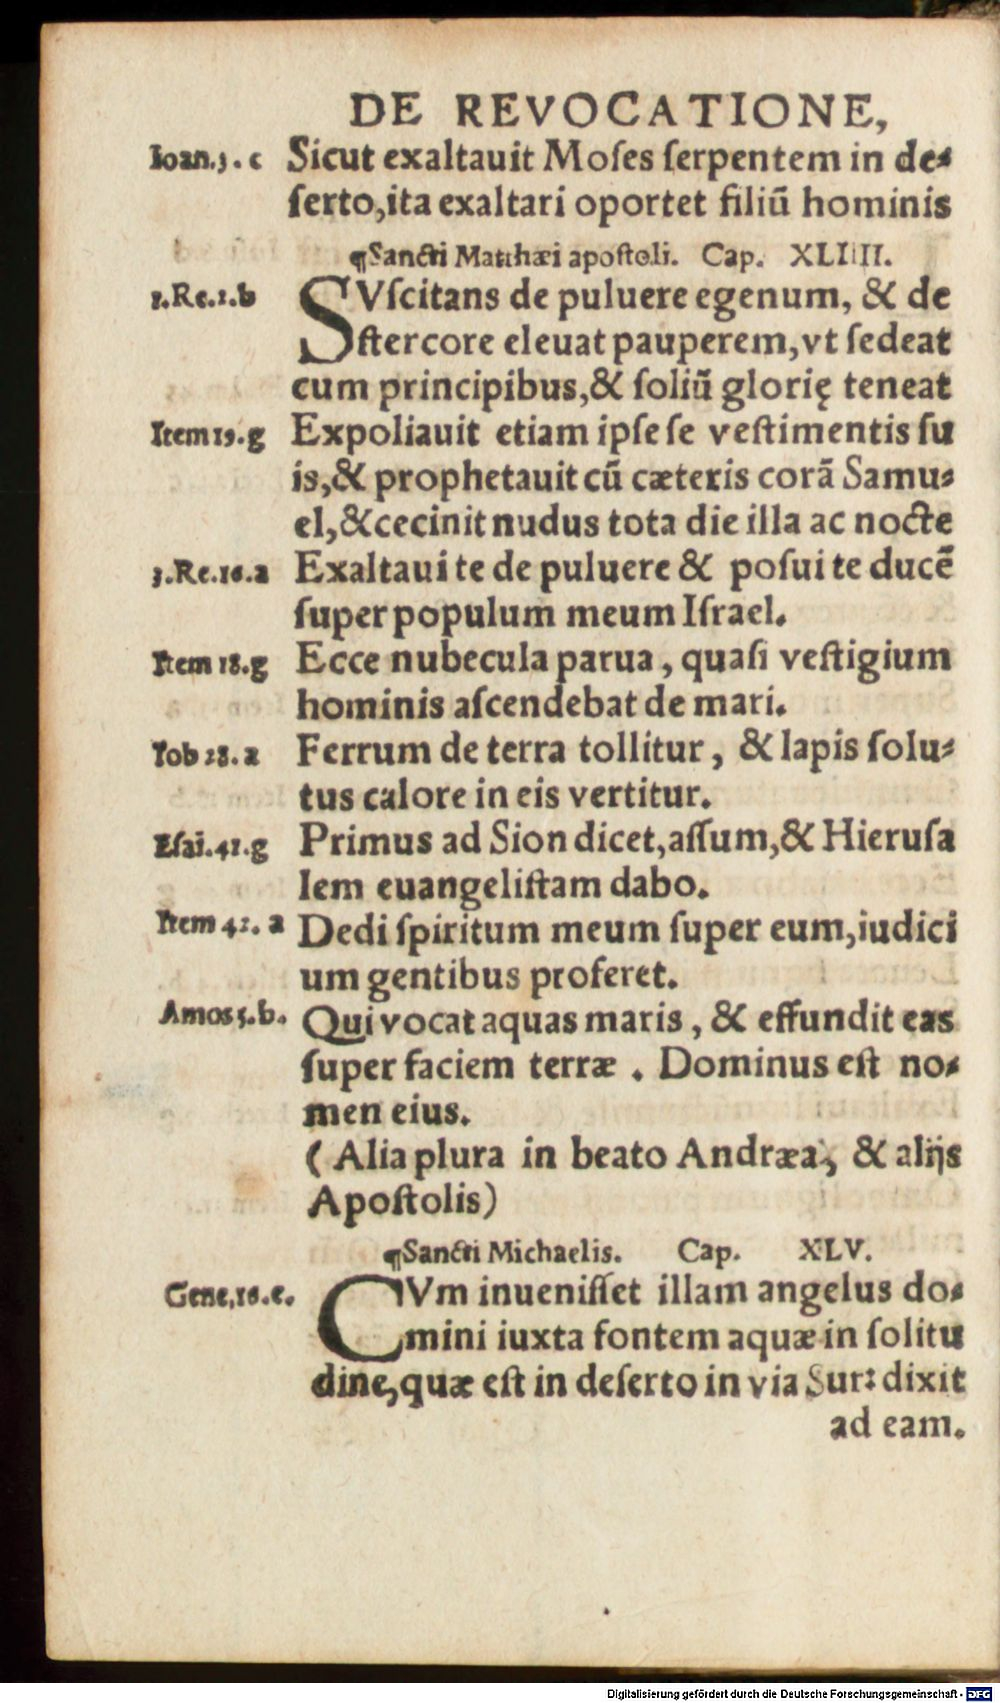 DE REVOCATIONE,
Ioan.3. c Sicut exaltauit Moſes ſerpentem in de⸗
ſerto,ita exaltari oportet filiū hominis
¶Sancti Matthæi apoſtoli. Cap. XLIIII.
1.Re.2.b SVſcitans de puluere egenum, & de
ſtercore eleuat pauperem,vt ſedeat
cum principibus,& ſoliū glorię teneat
Item 19.g Expoliauit etiam ipſe ſe veſtimentis ſu
is,& prophetauit cū cæteris corā Samu⸗
el,&cecinit nudus tota die illa ac nocte
3.Re.16.a Exaltaui te de puluere & poſui te ducē
ſuper populum meum Iſrael.
Item 18.g Ecce nubecula parua, quaſi veſtigium
hominis aſcendebat de mari.
Iob 28. a Ferrum de terra tollitur, & lapis ſolu⸗
tus calore in eis vertitur.
Eſai.41.g Primus ad Sion dicet,aſſum,& Hieruſa
lem euangeliſtam dabo.
Item 42. a Dedi ſpiritum meum ſuper eum,iudici
um gentibus proferet.
Amos 5.b. Qui vocat aquas maris, & effundit eas
ſuper faciem terræ . Dominus eſt no⸗
men eius.
( Alia plura in beato Andræa, & alijs
Apoſtolis)
¶Sancti Michaelis. Cap. XLV.
Gene,16.c. CVm inueniſſet illam angelus do⸗
mini iuxta fontem aquæ in ſolitu
dine,quæ eſt in deſerto in via Sur: dixit
ad eam.
Digitalisierung gefördert durch die Deutsche Forschungsgemeinschaft - DFG